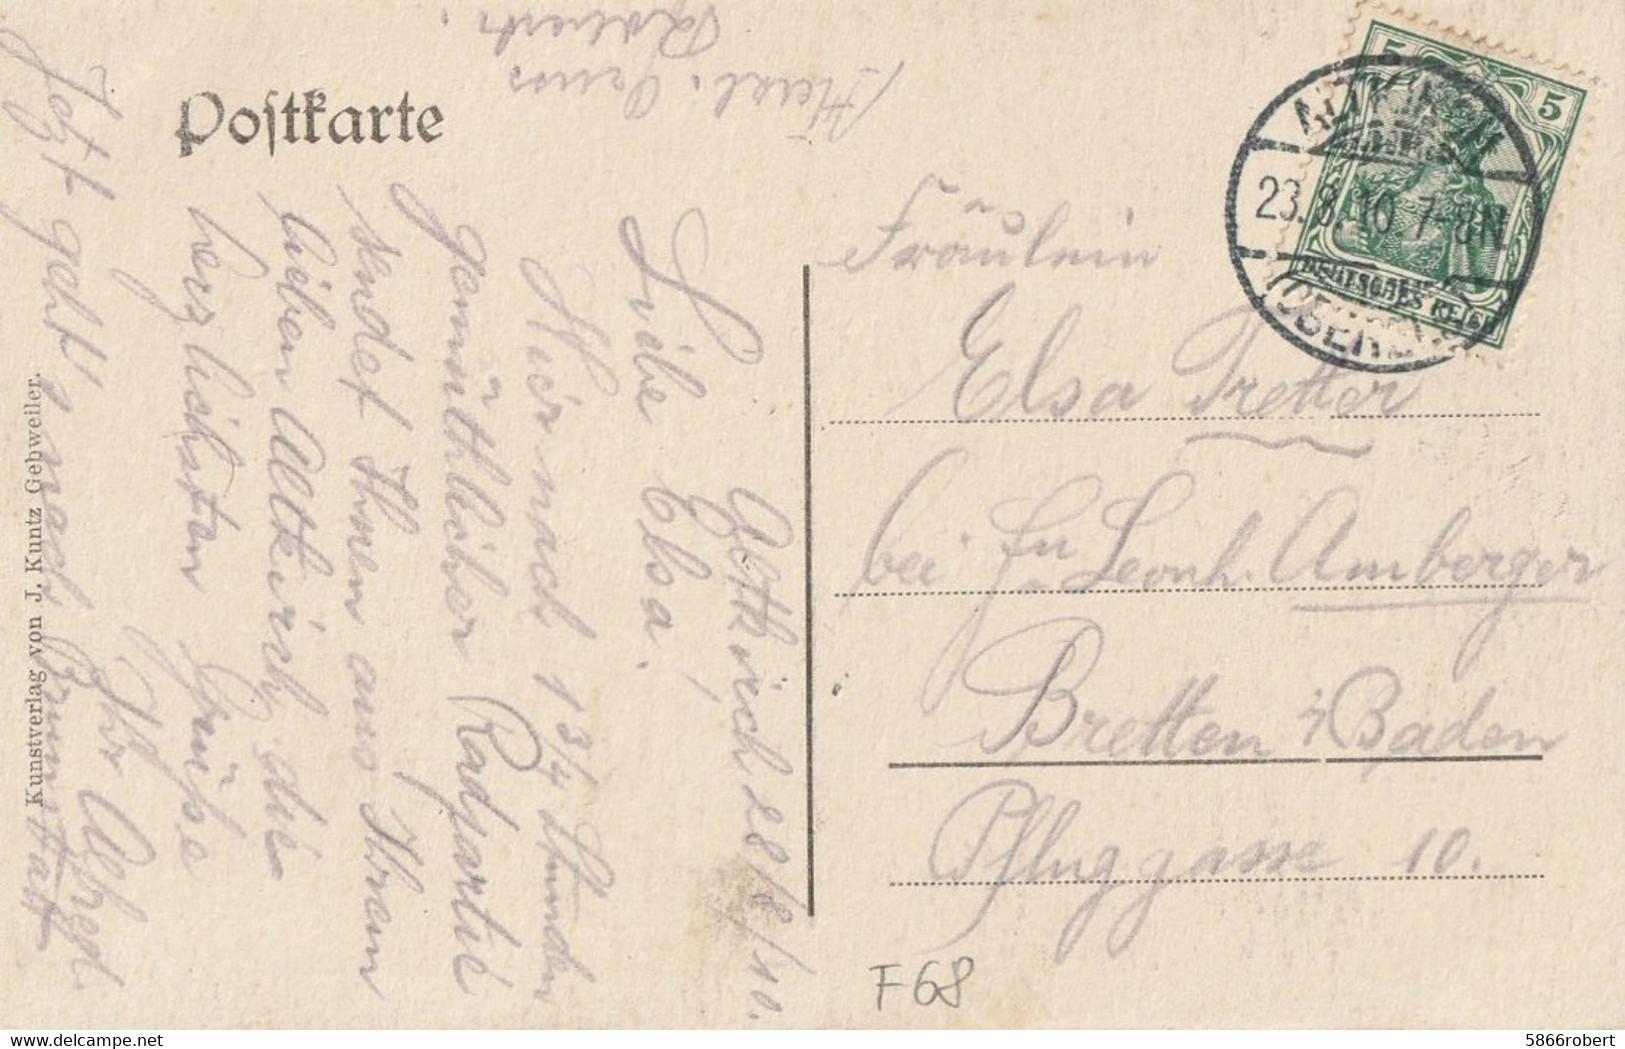 Postkarte
Herzl. Gruss
ALTKIRCH
23.8.10. 7-8N.
(OBERELS.)
5
5
DEUTSCHES REICH
Fräulein
Elsa Tretter
bei Fr. Leonh. Amberger
Bretten i/Baden
Pfluggasse 10.
Altkirch, 28/8/10.
Liebe Elsa!
Hier nach 1 3/4 Stunden
gemüthlicher Radpartie
sendet Ihnen aus Ihrem
lieben Altkirch die
herzlichsten Grüsse
Ihr Alfred
Jetzt geht's nach
Kunstverlag von J. Kuntz Gebweiler.
F68
5866robert